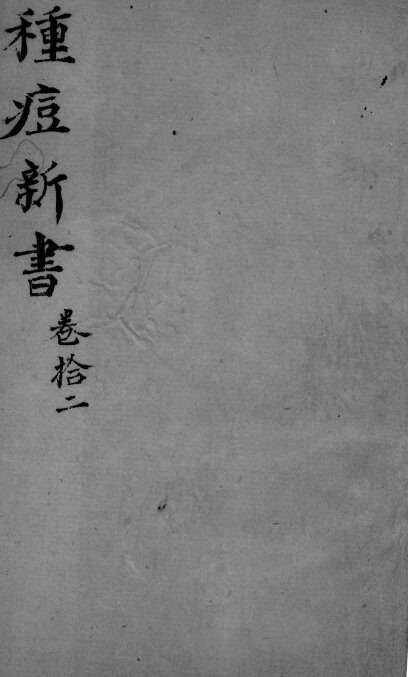 種痘新書
卷拾二